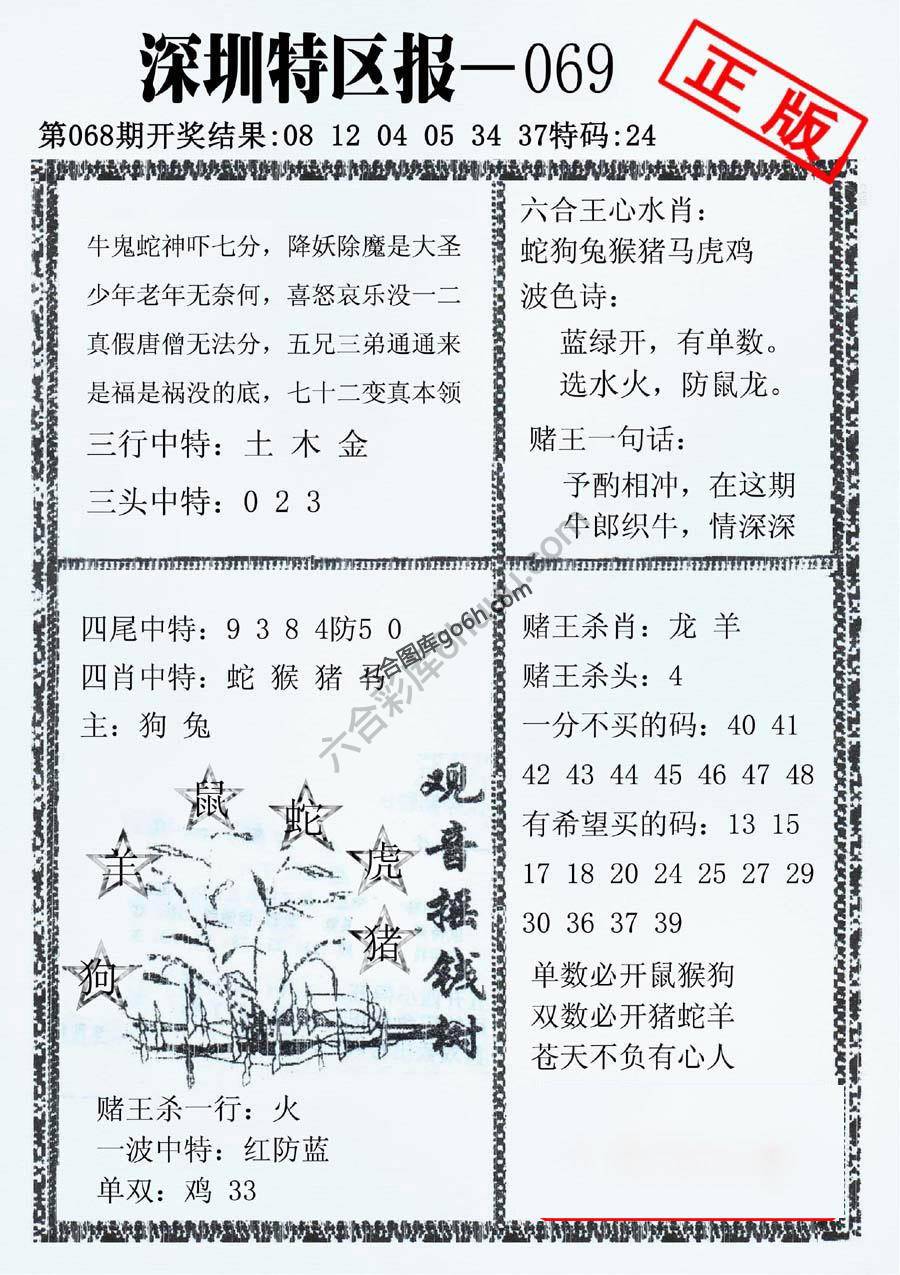 深圳特区报—069
正版
第068期开奖结果:08 12 04 05 34 37特码:24
牛鬼蛇神吓七分，降妖除魔是大圣
少年老年无奈何，喜怒哀乐没一二
真假唐僧无法分，五兄三弟通通来
是福是祸没的底，七十二变真本领
三行中特：土 木 金
三头中特：0 2 3
六合王心水肖：
蛇狗兔猴猪马虎鸡
波色诗：
蓝绿开，有单数。
选水火，防鼠龙。
赌王一句话：
予酌相冲，在这期
牛郎织牛，情深深
四尾中特：9 3 8 4防5 0
四肖中特：蛇 猴 猪 马
主：狗 兔
鼠
蛇
羊
虎
狗
猪
观音摇钱树
赌王杀一行：火
一波中特：红防蓝
单双：鸡 33
赌王杀肖：龙 羊
赌王杀头：4
一分不买的码：40 41
42 43 44 45 46 47 48
有希望买的码：13 15
17 18 20 24 25 27 29
30 36 37 39
单数必开鼠猴狗
双数必开猪蛇羊
苍天不负有心人
六合图库go6h.com